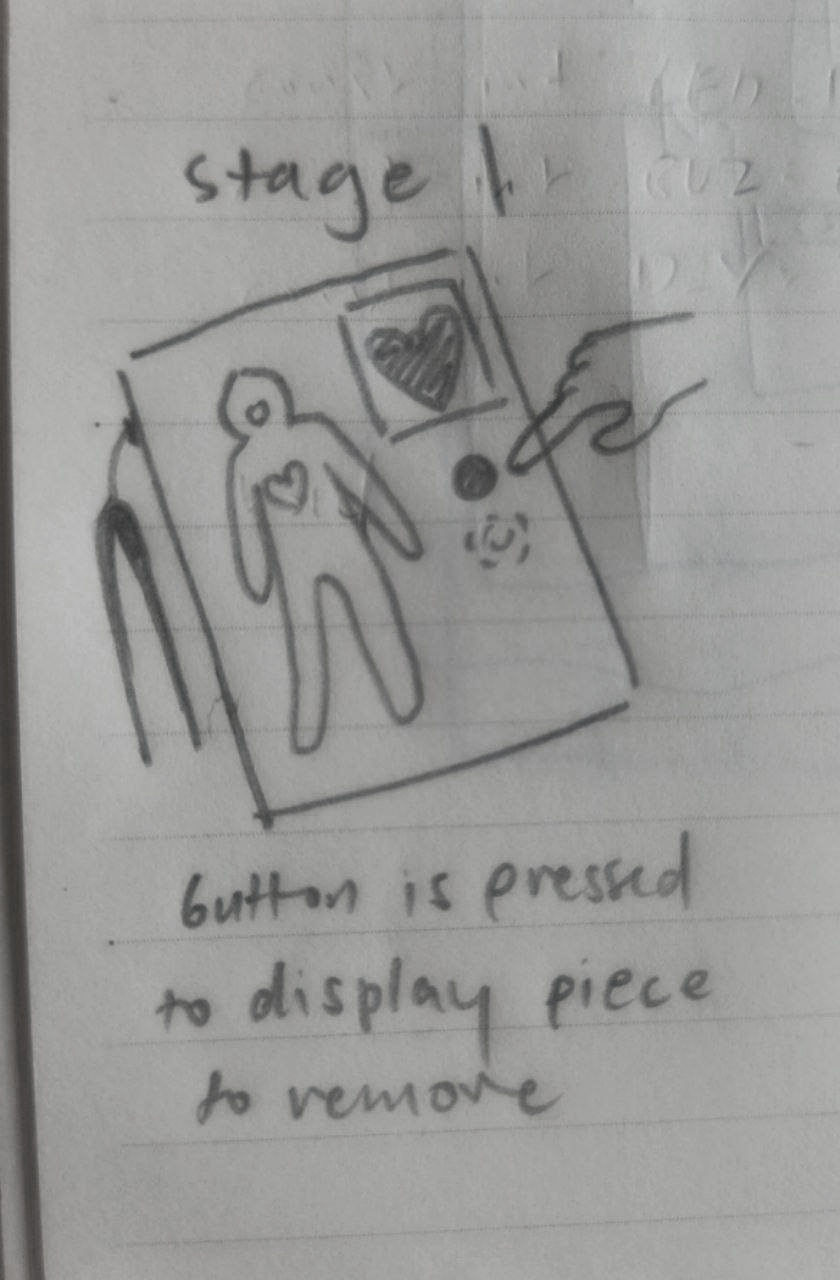 stage 1
button is pressed
to display piece
to remove